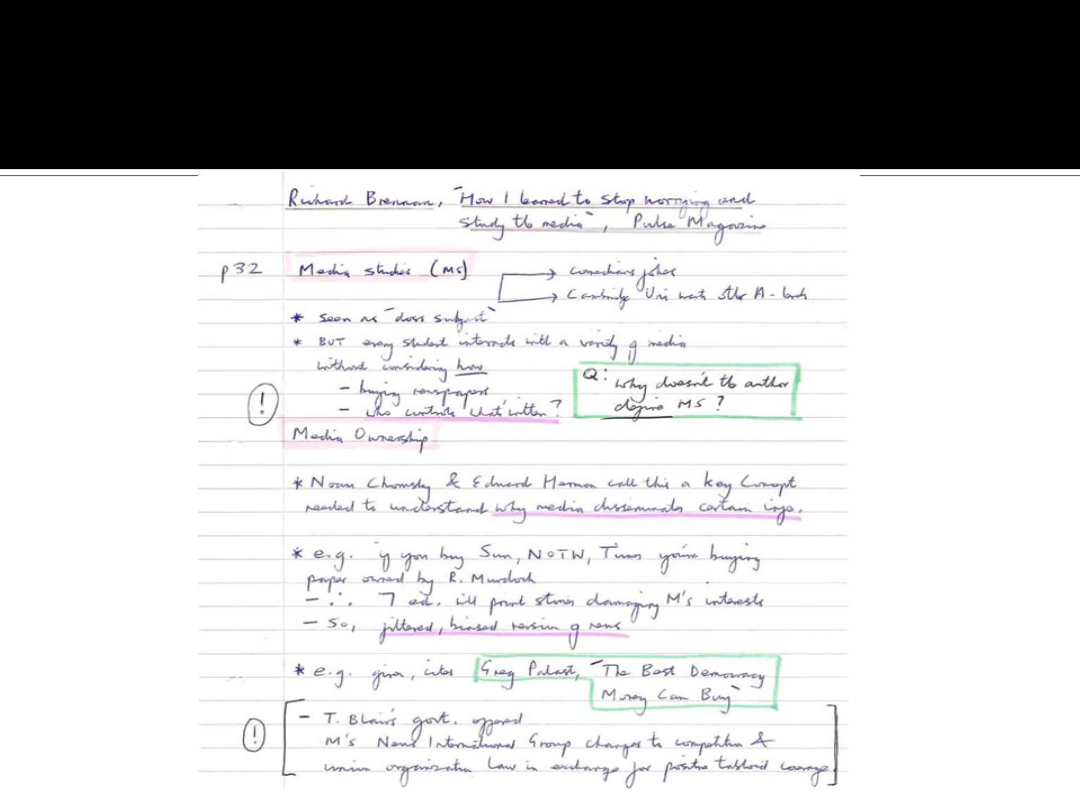 Richard Brennan, "How I learned to stop worrying and
study the media", Pulse Magazine
p32 Media studies (MS) → comedians jokes
→ Cambridge Uni wants other A-levels
* seen as "doss subject"
* BUT every student interacts with a variety of media
without considering how
- buying newspapers
- who controls what's written?
Q: why doesn't the author
define MS?
!
Media Ownership
* Noam Chomsky & Edward Herman call this a key concept
needed to understand why media disseminates certain info.
* e.g. if you buy Sun, NOTW, Times you're buying
paper owned by R. Murdoch
- ∴ ed. will print stories damaging M's interests
- So, filtered, biased version of news
* e.g. given, cites Greg Palast, "The Best Democracy
Money Can Buy"
!
- T. Blair's govt. offered
M's News International Group changes to competition &
union organization law in exchange for positive tabloid coverage